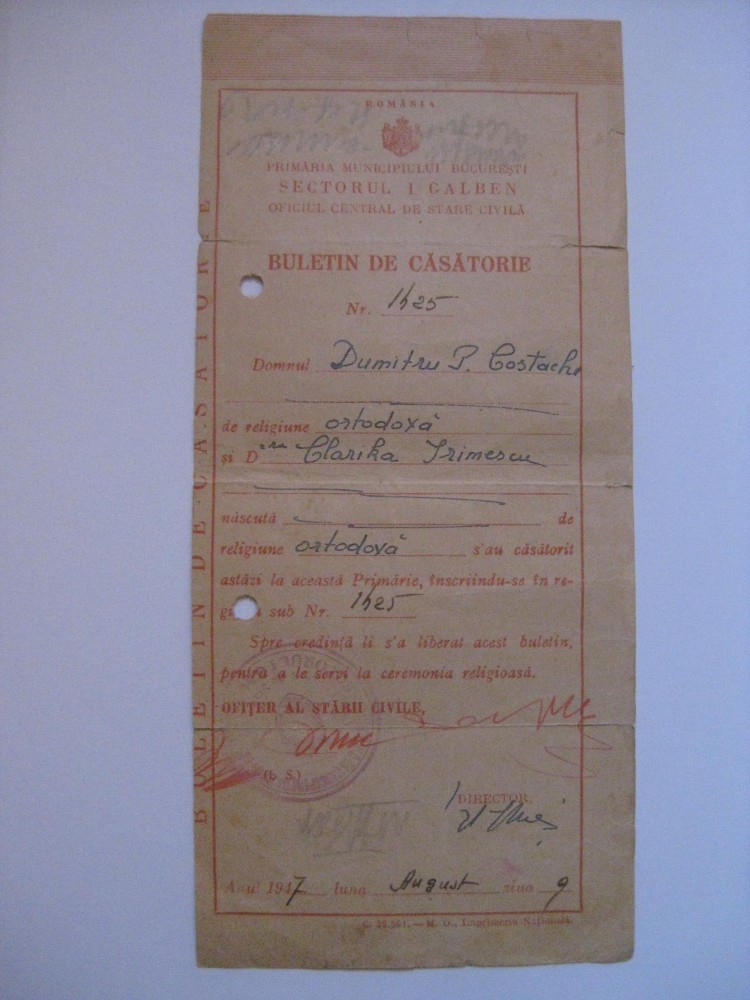 ROMÂNIA
PRIMĂRIA MUNICIPIULUI BUCUREȘTI
SECTORUL I GALBEN
OFICIUL CENTRAL DE STARE CIVILĂ
BULETIN DE CĂSĂTORIE
Nr. 1425
Domnul Dumitru P. Costache
de religiune ortodoxă
și D ra Clarika Irimescu
născută de
religiune ortodoxă s'au căsătorit
astăzi la această Primărie, înscriindu-se în re-
sub Nr. 1425
Spre credință li s'a liberat acest buletin,
pentru a le servi la ceremonia religioasă.
OFIȚER AL STĂRII CIVILE,
(L. S.)
DIRECTOR,
Anul 1947 luna August ziua 9
M. O., Imprimeria Națională.
BULETIN DE CĂSĂTORIE